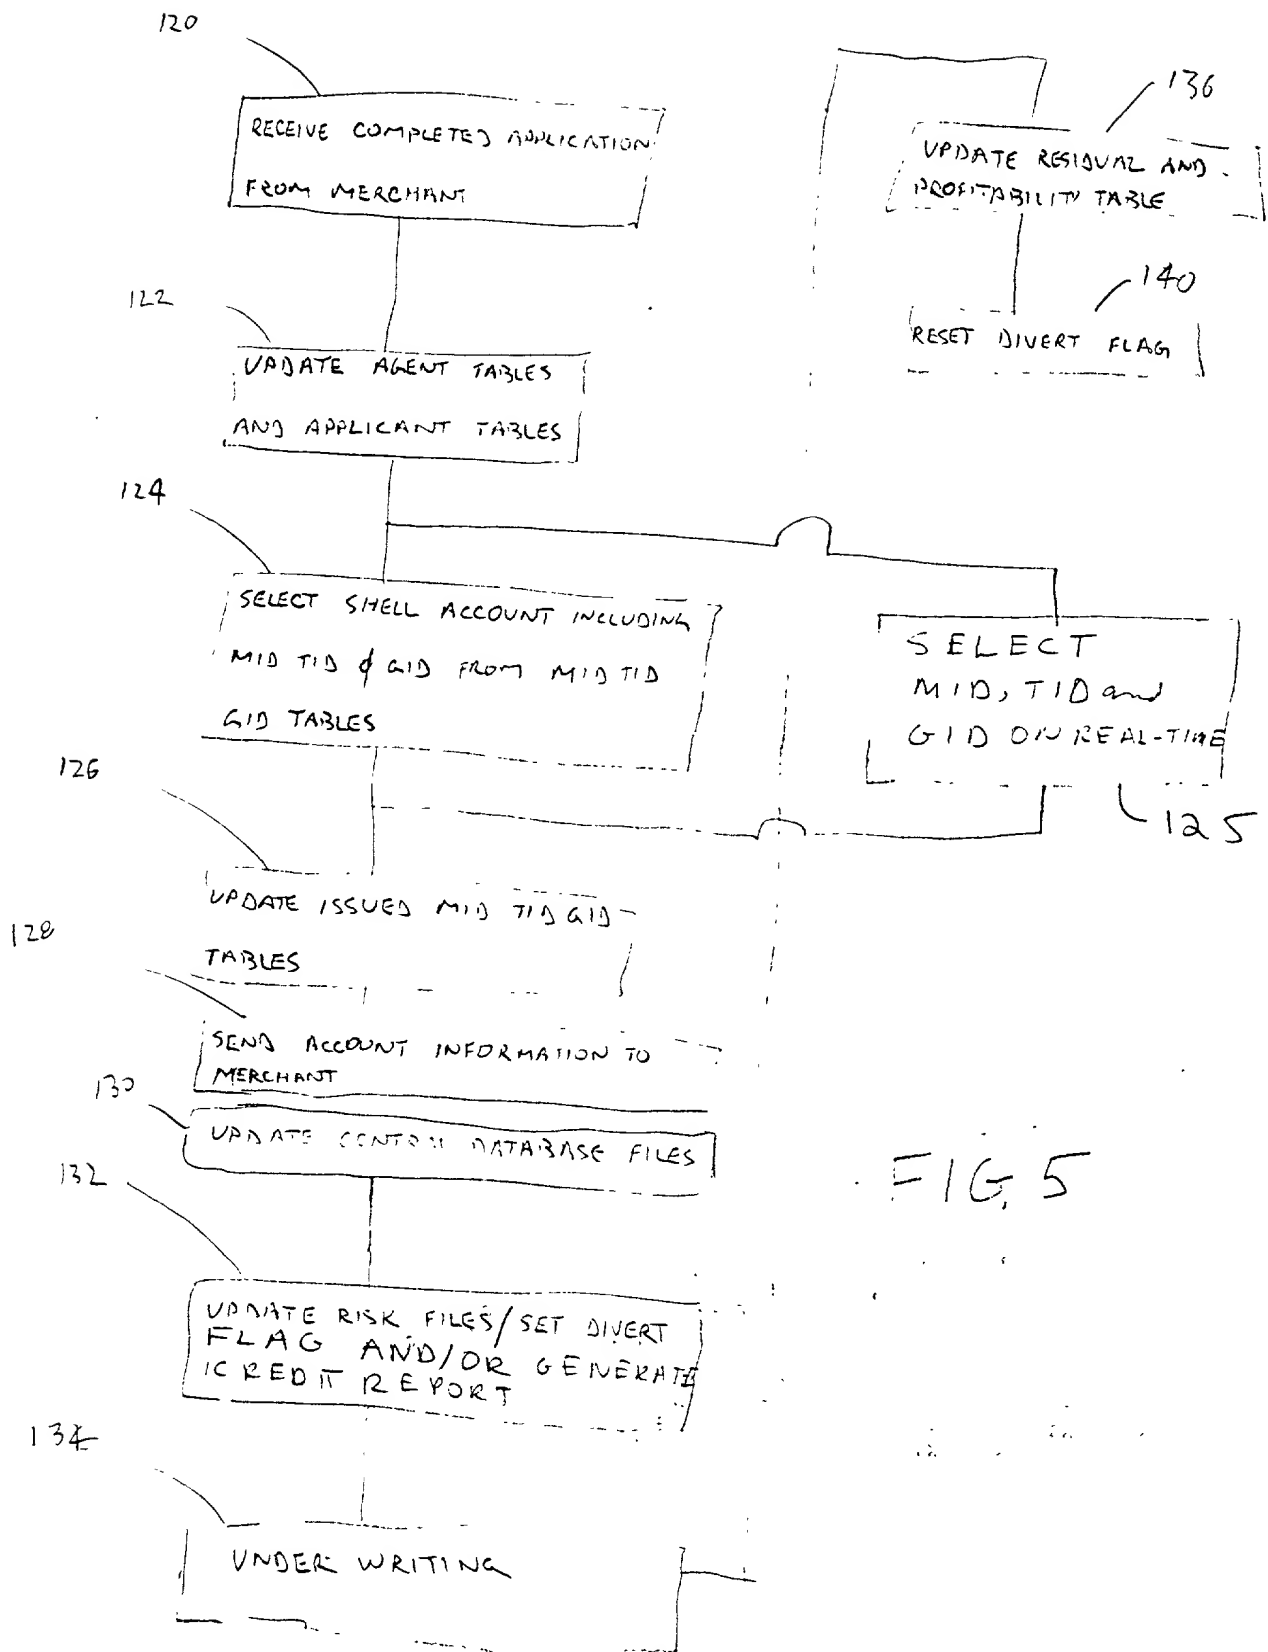 120
RECEIVE COMPLETED APPLICATION
FROM MERCHANT
122
UPDATE AGENT TABLES
AND APPLICANT TABLES
124
SELECT SHELL ACCOUNT INCLUDING
MID TID & GID FROM MID TID
GID TABLES
SELECT
MID, TID and
GID ON REAL-TIME
125
126
UPDATE ISSUED MID TID GID
TABLES
128
SEND ACCOUNT INFORMATION TO
MERCHANT
130
UPDATE DATABASE FILES
132
UPDATE RISK FILES/SET DIVERT
FLAG AND/OR GENERATE
CREDIT REPORT
134
UNDER WRITING
136
UPDATE RESIDUAL AND
PROFITABILITY TABLE
140
RESET DIVERT FLAG
FIG. 5